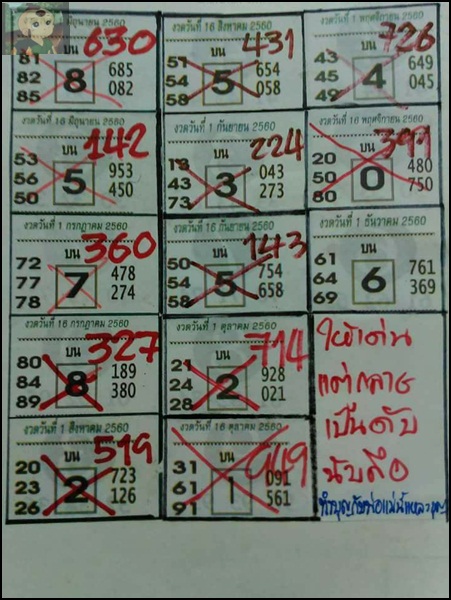 มิถุนายน 2560
บน 630
81 8 685
82 082
85
งวดวันที่ 16 สิงหาคม 2560
บน 431
51 5 654
54 058
58
งวดวันที่ 1 พฤศจิกายน 2560
บน 726
43 4 649
45 045
49
งวดวันที่ 16 มิถุนายน 2560
บน 142
53 5 953
56 450
50
งวดวันที่ 1 กันยายน 2560
บน 224
13 3 043
43 273
73
งวดวันที่ 16 พฤศจิกายน 2560
บน 399
20 0 480
50 750
80
งวดวันที่ 1 กรกฎาคม 2560
บน 360
72 7 478
77 274
78
งวดวันที่ 16 กันยายน 2560
บน 143
50 5 754
54 658
58
งวดวันที่ 1 ธันวาคม 2560
บน
61 6 761
64 369
69
งวดวันที่ 16 กรกฎาคม 2560
บน 327
80 8 189
84 380
89
งวดวันที่ 1 ตุลาคม 2560
บน 714
21 2 928
24 021
28
งวดวันที่ 1 สิงหาคม 2560
บน 599
20 2 723
23 126
26
งวดวันที่ 16 ตุลาคม 2560
บน
31 1 091
61 561
91
ให้เด่น
แต่กลาย
เป็นดับ
นับถือ